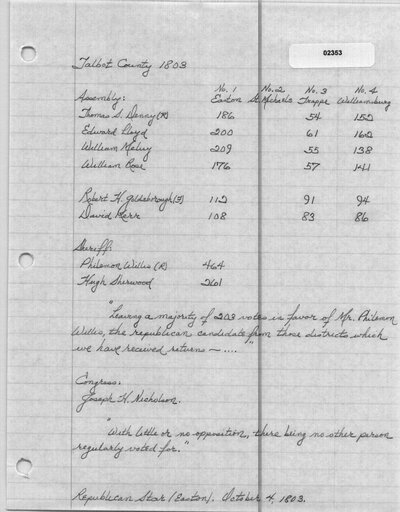 02353
Talbot County 1803
No. 1 No. 2 No. 3 No. 4
Assembly: Easton St. Michaels Trappe Williamsburg
Thomas S. Denny (R) 186 54 152
Edward Lloyd 200 61 162
William Meluy 209 55 138
William Rose 176 57 141
Robert H. Goldsborough (F) 112 91 94
David Kerr 108 83 86
Sheriff:
Philemon Willis (R) 464
Hugh Sherwood 261
"Leaving a majority of 203 votes in favor of Mr. Philemon
Willis, the republican candidate from those districts which
we have received returns — ...."
Congress:
Joseph H. Nicholson.
"With little or no opposition, there being no other person
regularly voted for."
Republican Star (Easton). October 4, 1803.